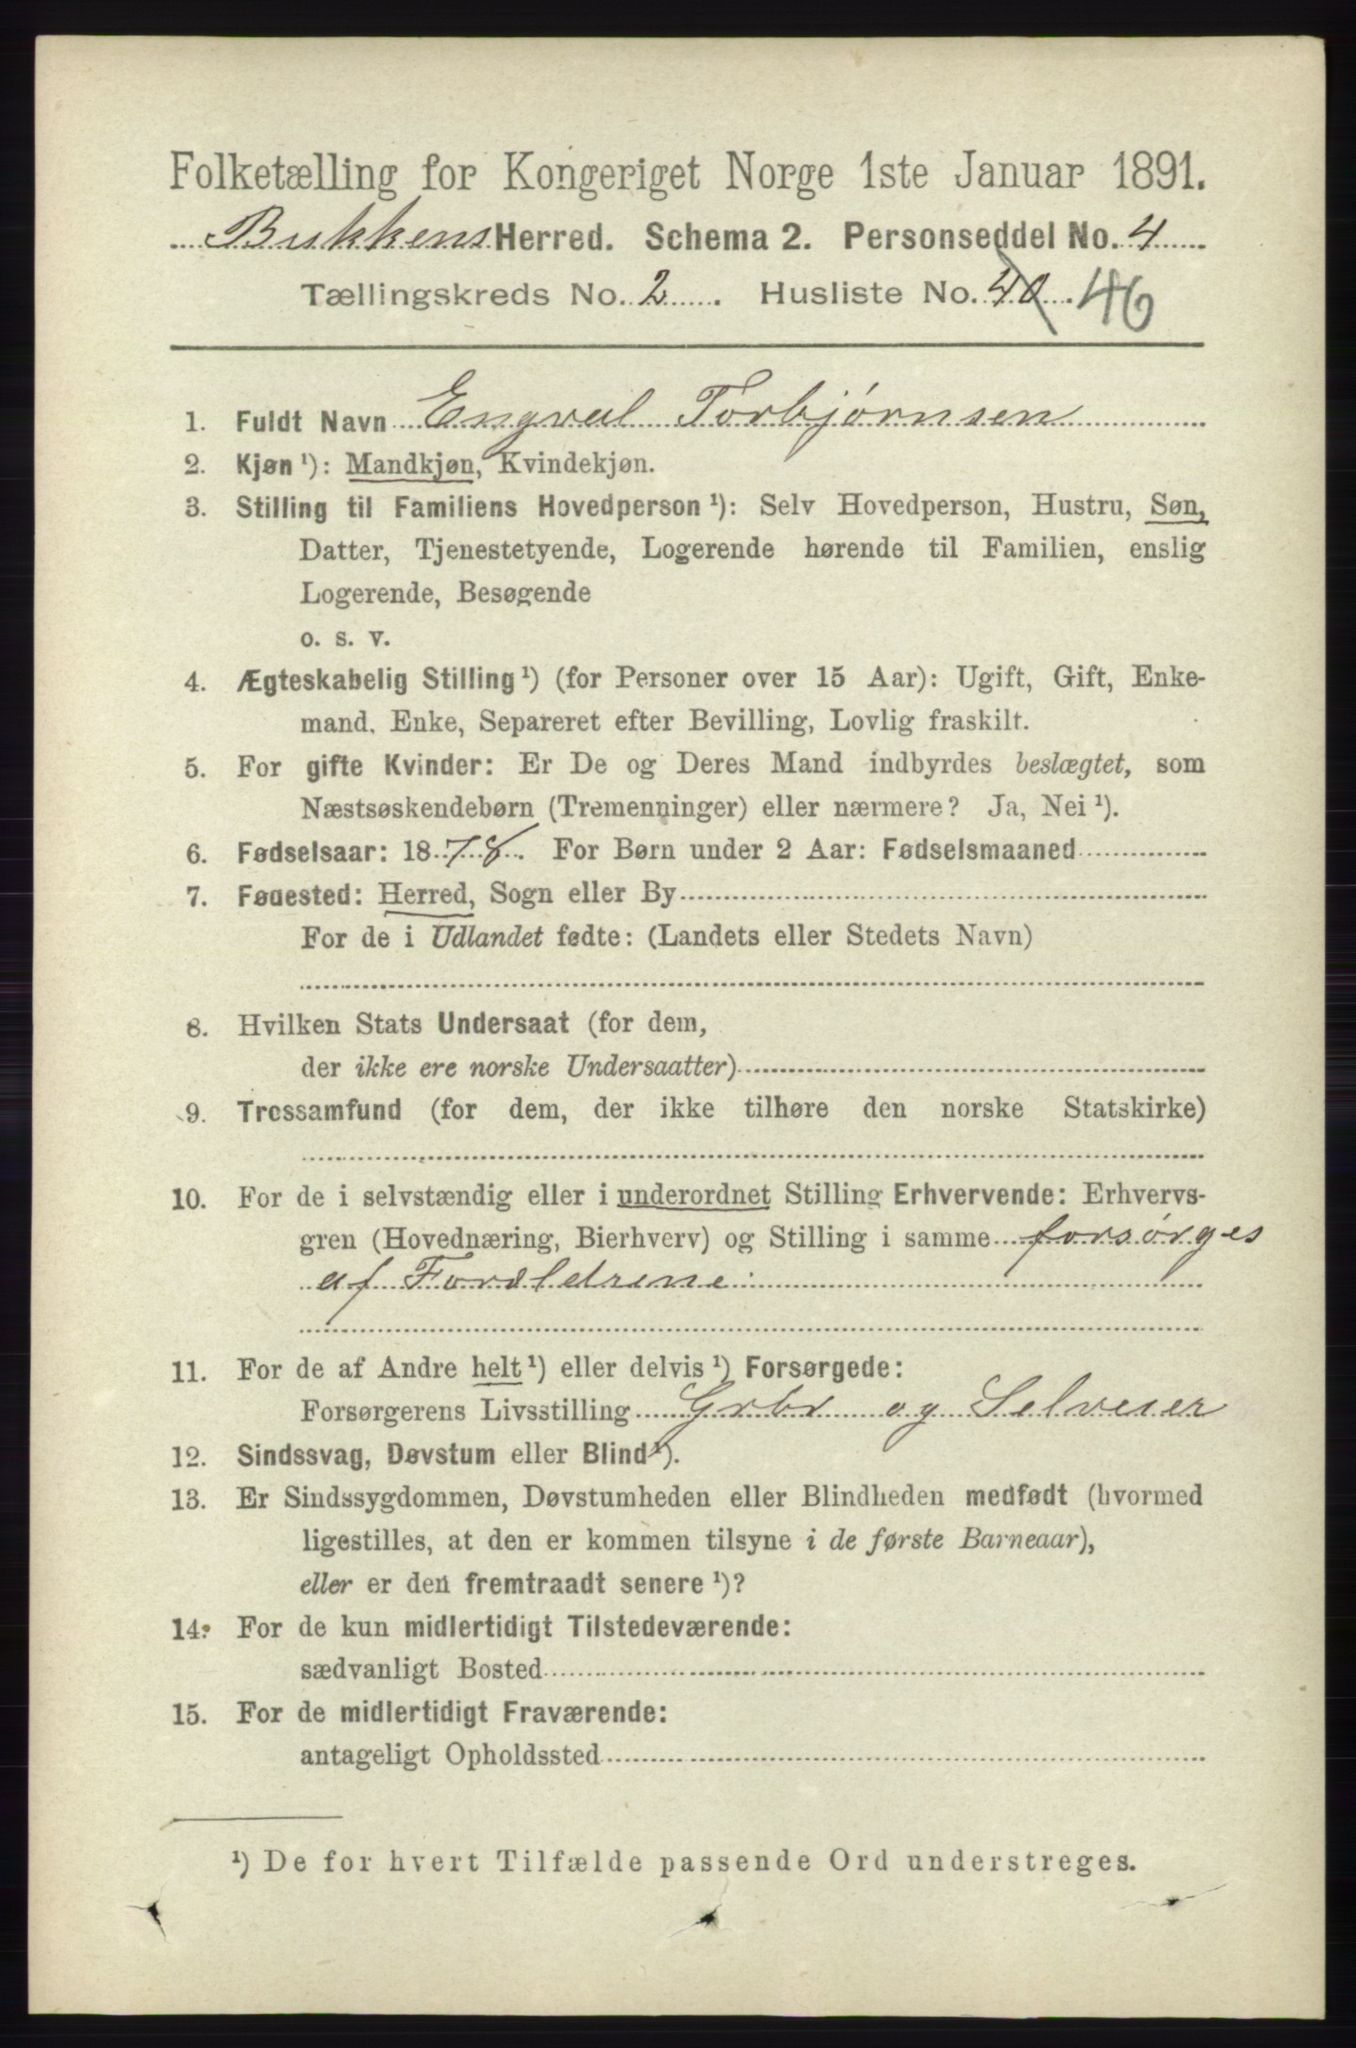 Folketælling for Kongeriget Norge 1ste Januar 1891.
Bukkens Herred. Schema 2. Personseddel No. 4
Tællingskreds No. 2. Husliste No. 40. 46
1. Fuldt Navn Engval Torbjørnsen
2. Kjøn ¹): Mandkjøn, Kvindekjøn.
3. Stilling til Familiens Hovedperson ¹): Selv Hovedperson, Hustru, Søn,
Datter, Tjenestetyende, Logerende hørende til Familien, enslig
Logerende, Besøgende
o. s. v.
4. Ægteskabelig Stilling ¹) (for Personer over 15 Aar): Ugift, Gift, Enke-
mand, Enke, Separeret efter Bevilling, Lovlig fraskilt.
5. For gifte Kvinder: Er De og Deres Mand indbyrdes beslægtet, som
Næstsøskendebørn (Tremenninger) eller nærmere? Ja, Nei ¹).
6. Fødselsaar: 1878. For Børn under 2 Aar: Fødselsmaaned
7. Fødested: Herred, Sogn eller By
For de i Udlandet fødte: (Landets eller Stedets Navn)
8. Hvilken Stats Undersaat (for dem,
der ikke ere norske Undersaatter)
9. Trossamfund (for dem, der ikke tilhøre den norske Statskirke)
10. For de i selvstændig eller i underordnet Stilling Erhvervende: Erhvervs-
gren (Hovednæring, Bierhverv) og Stilling i samme forsørges
af Forældrene
11. For de af Andre helt ¹) eller delvis ¹) Forsørgede:
Forsørgerens Livsstilling Grbr og Selveier
12. Sindssvag, Døvstum eller Blind ¹).
13. Er Sindssygdommen, Døvstumheden eller Blindheden medfødt (hvormed
ligestilles, at den er kommen tilsyne i de første Barneaar),
eller er den fremtraadt senere ¹)?
14. For de kun midlertidigt Tilstedeværende:
sædvanligt Bosted
15. For de midlertidigt Fraværende:
antageligt Opholdssted
¹) De for hvert Tilfælde passende Ord understreges.